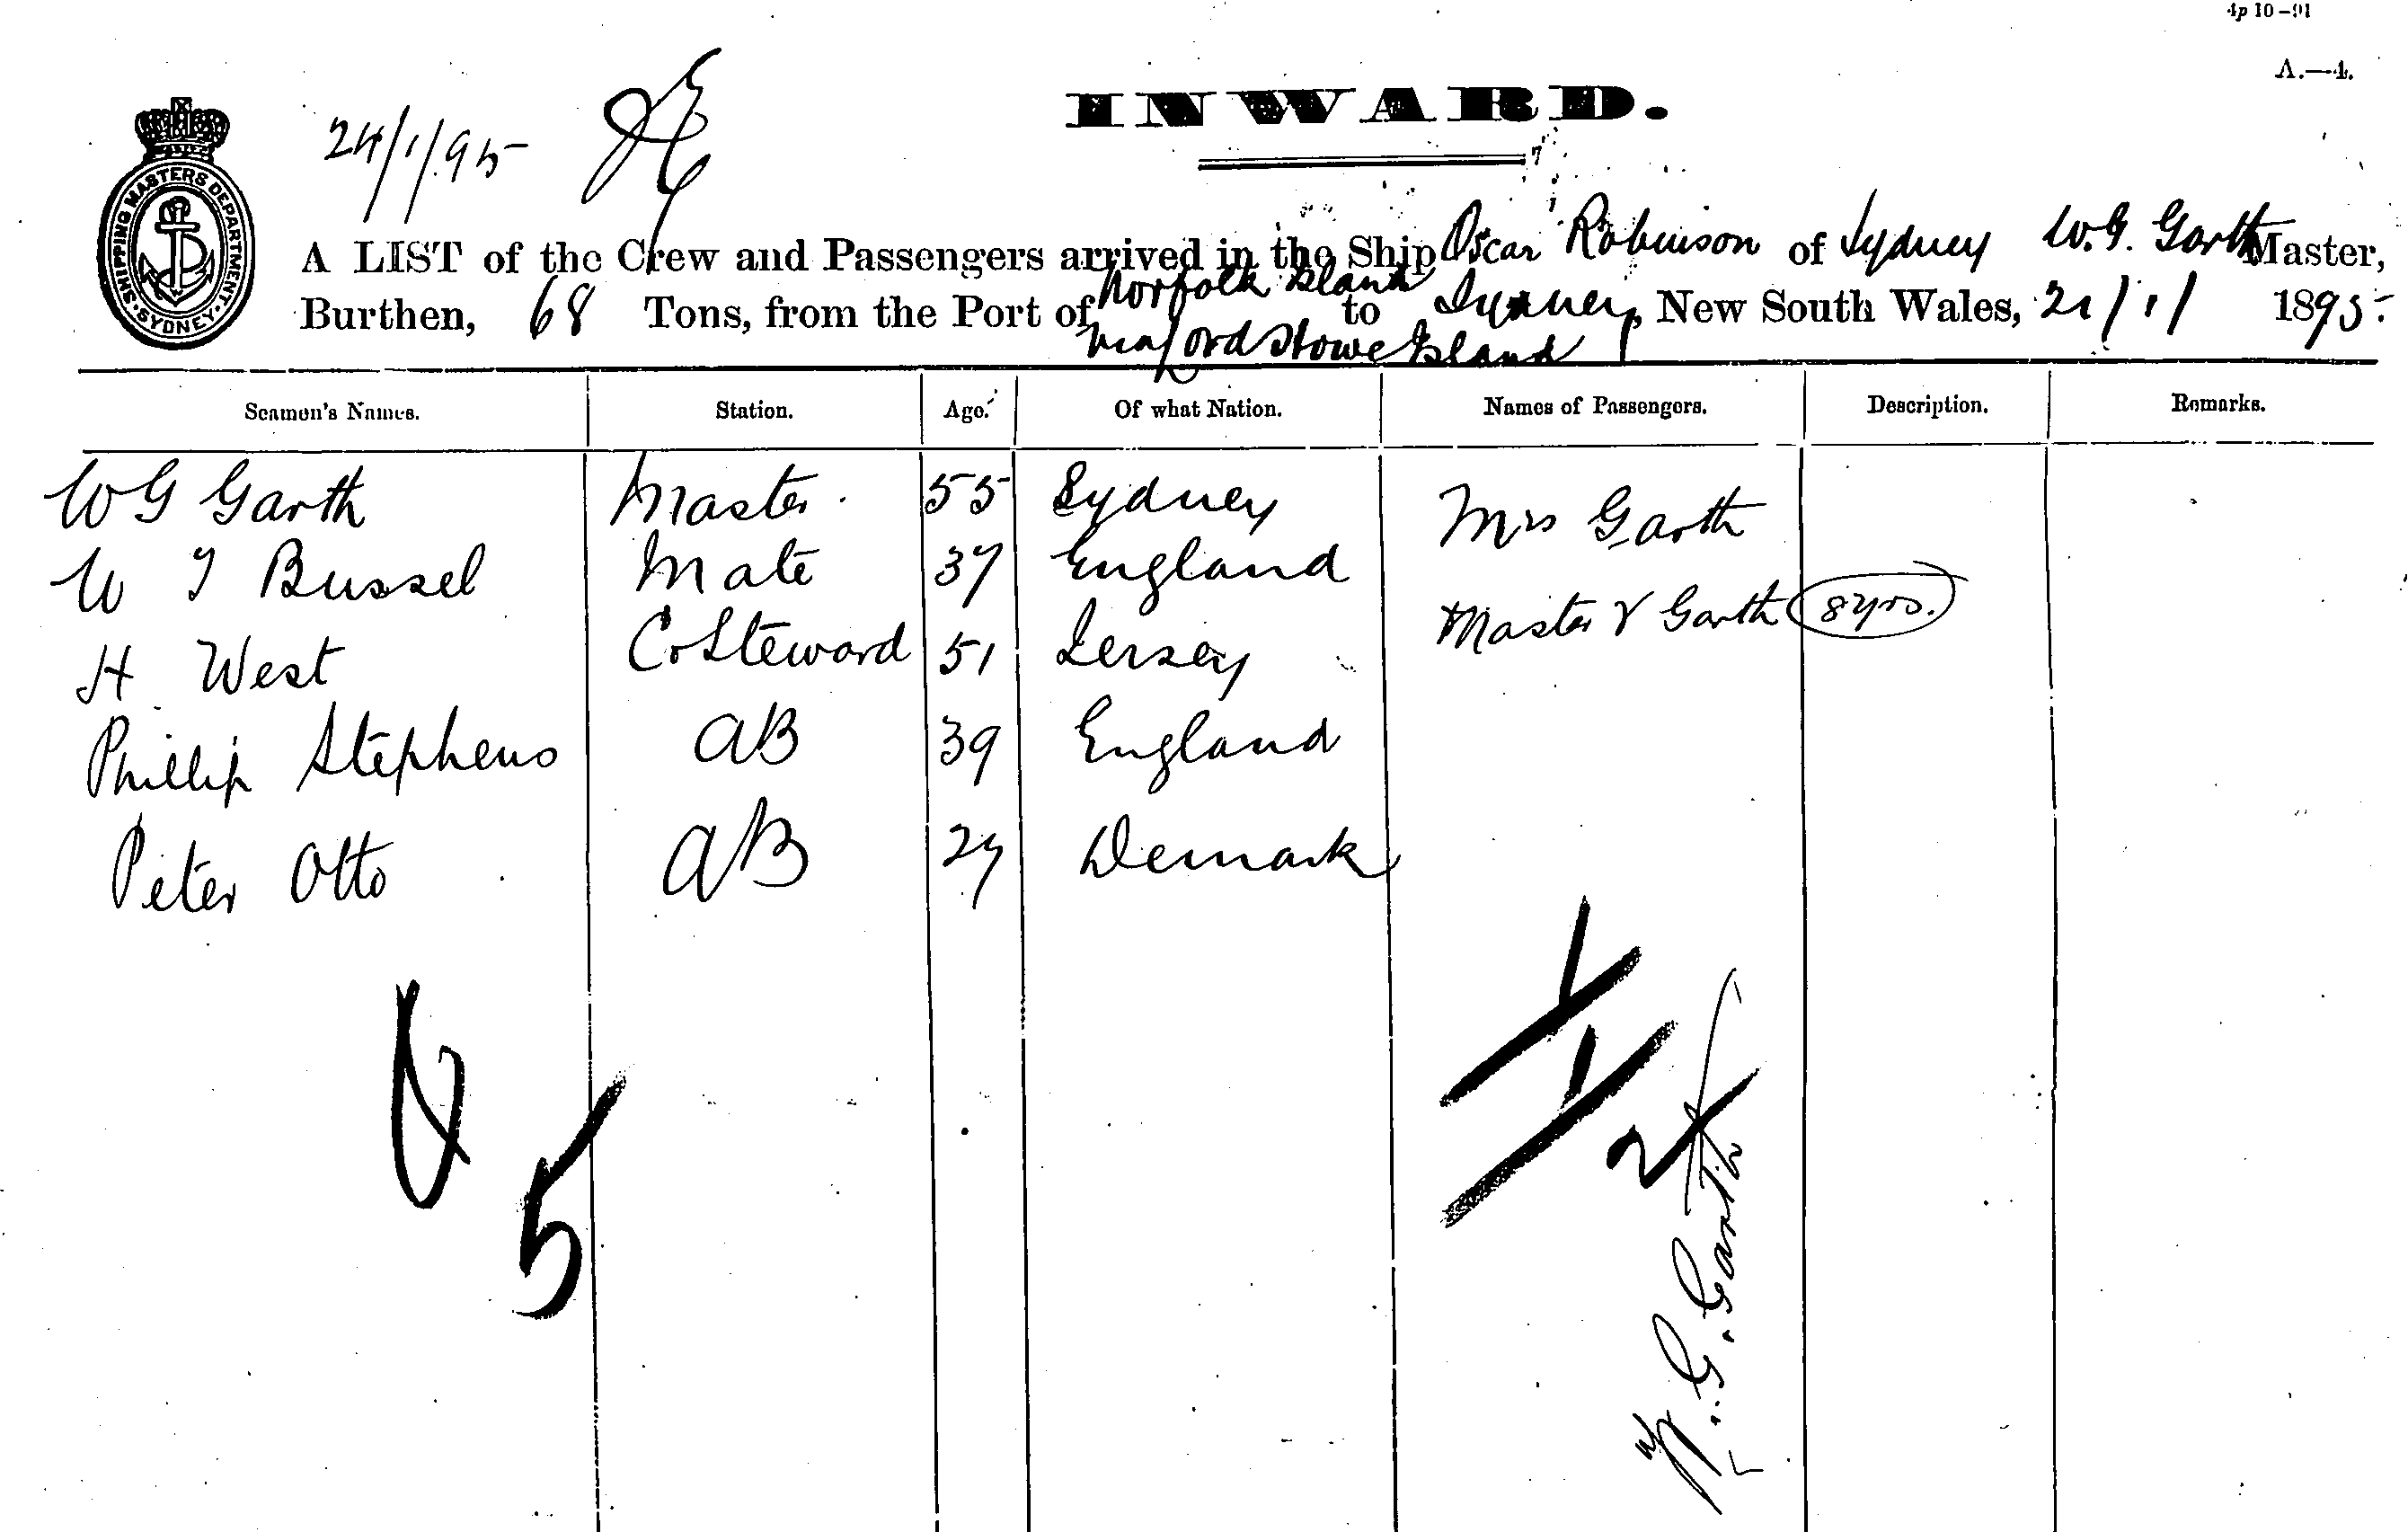 4p 10–91
A.—4.
INWARD.
24/1/95
SHIPPING MASTERS DEPARTMENT
SYDNEY
A LIST of the Crew and Passengers arrived in the Ship Oscar Robinson of Sydney W.G. Garth Master,
Burthen, 68 Tons, from the Port of Norfolk Island to Sydney, New South Wales, 21/1/ 1895.
via Lord Howe Island
Seamen's Names. Station. Age. Of what Nation. Names of Passengers. Description. Remarks.
W G Garth Master. 55 Sydney Mrs Garth
W J Bussel Mate 37 England Master Garth 8 yrs.
H West C Steward 51 Jersey
Phillip Stephens AB 39 England
Peter Otto AB 27 Demark
5
1
1
2
W. G. Garth